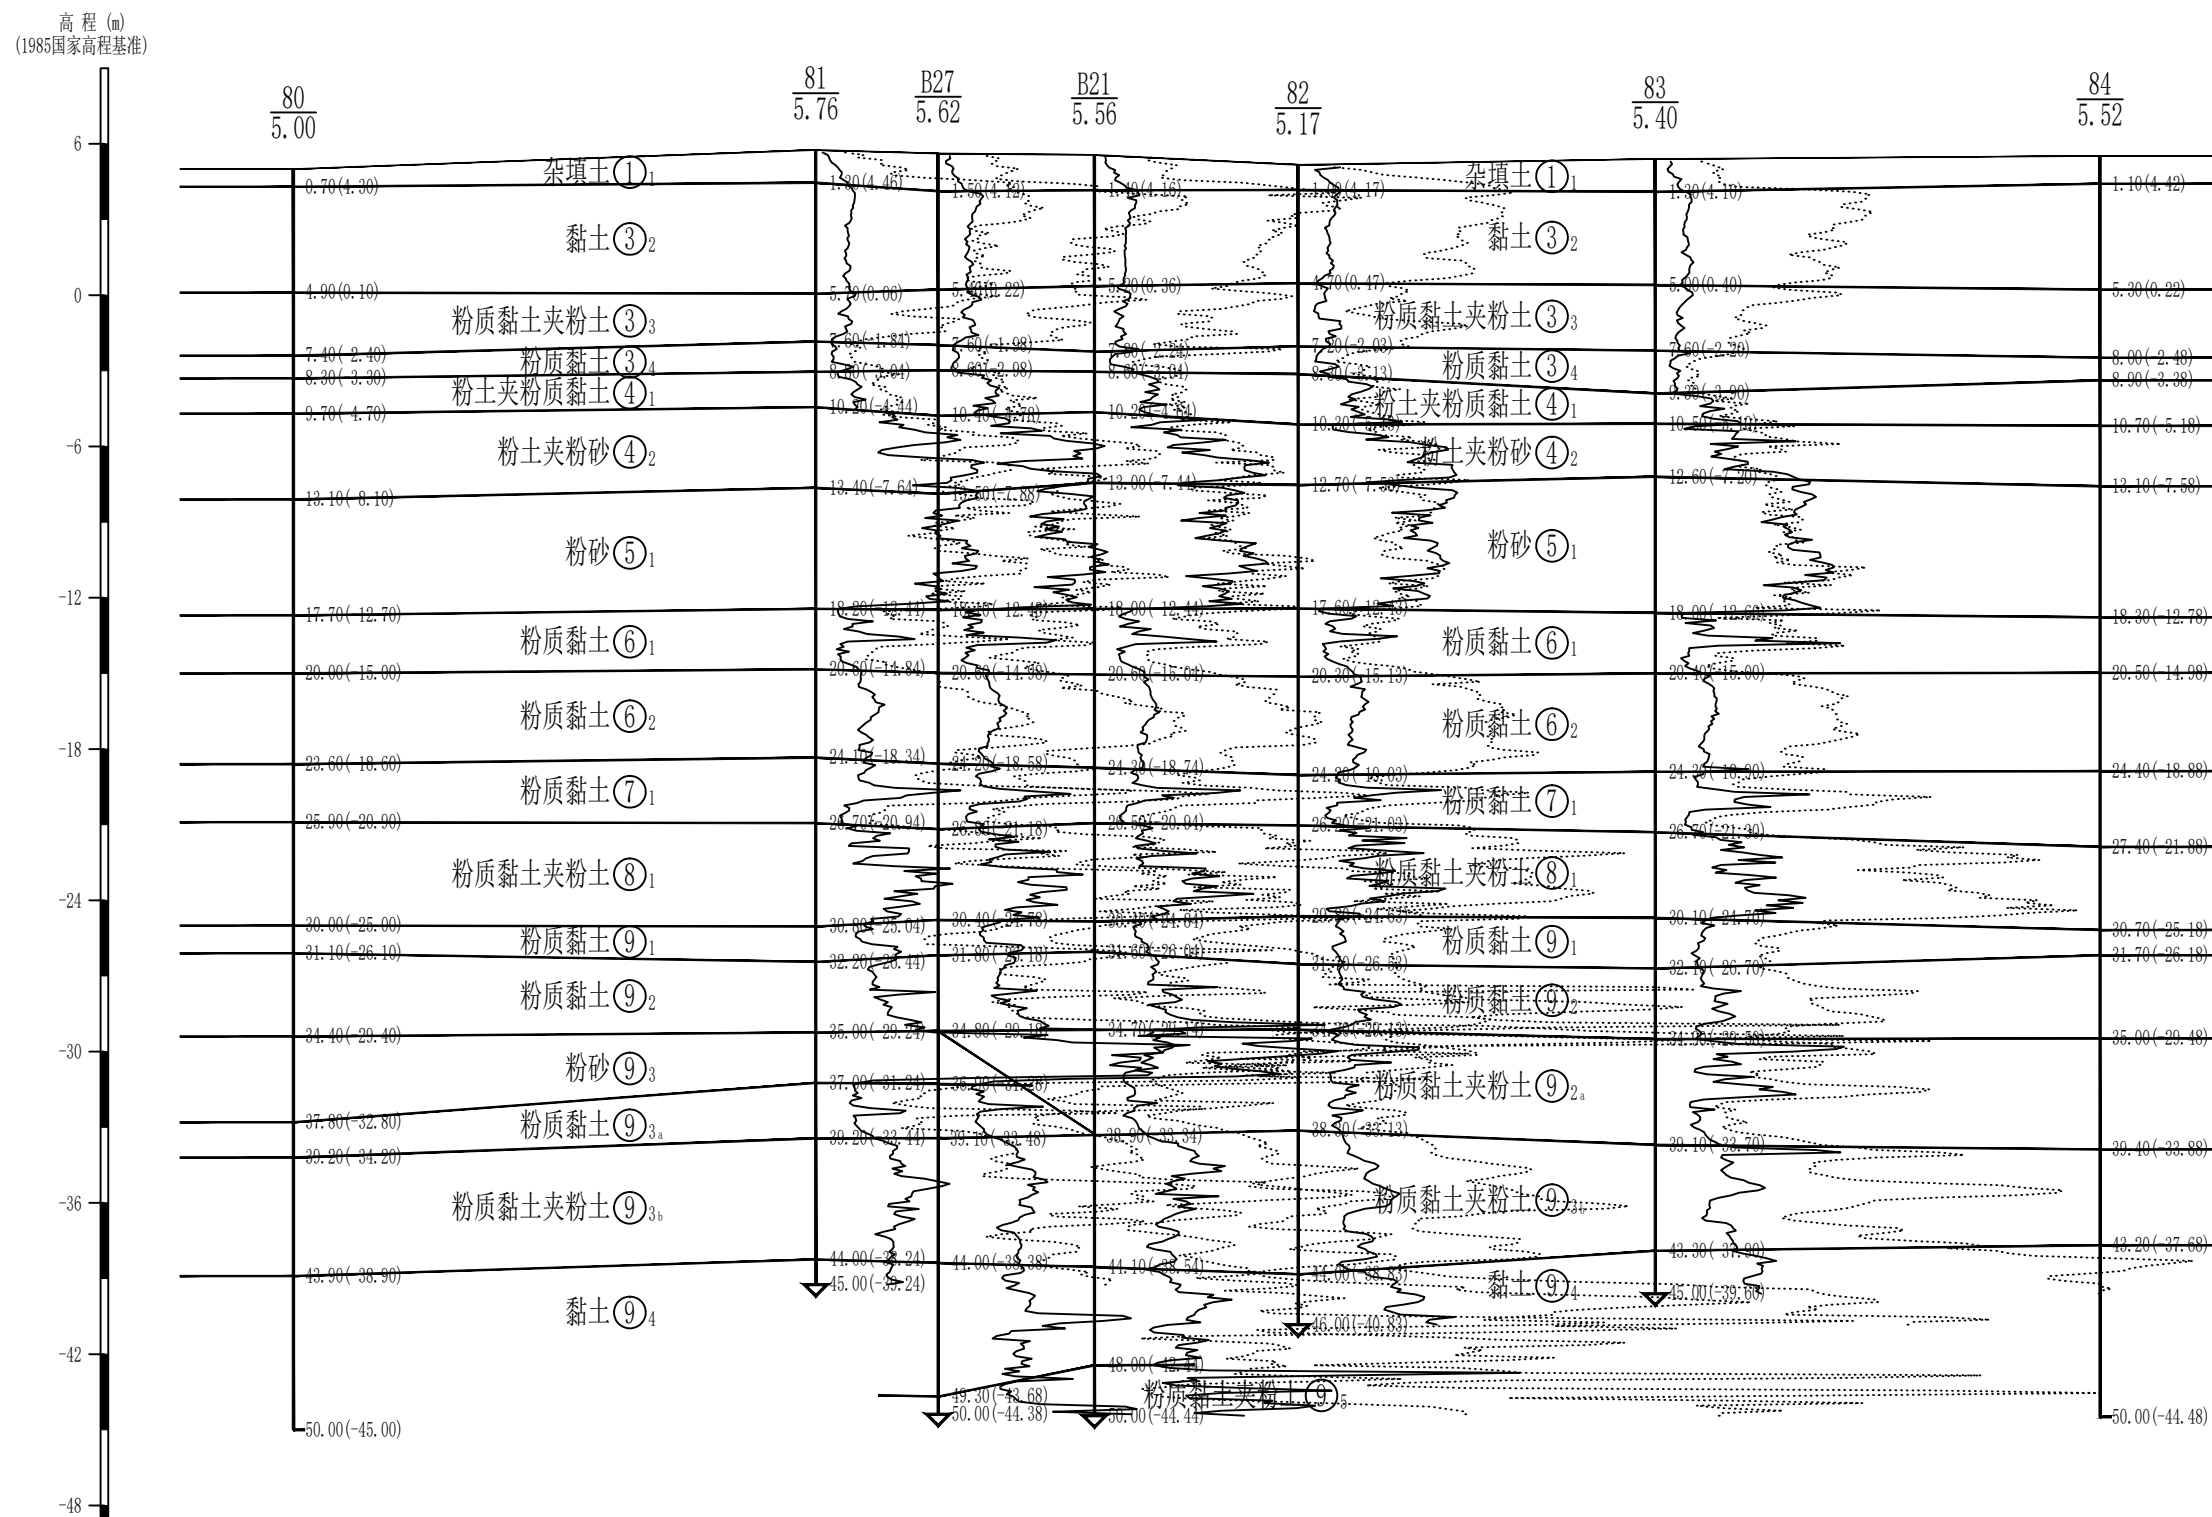 高 程 (m)
(1985国家高程基准)
80
5.00
81
5.76
B27
5.62
B21
5.56
82
5.17
83
5.40
84
5.52
6
0
-6
-12
-18
-24
-30
-36
-42
-48
0.70(4.30)
4.90(0.10)
7.40(-2.40)
8.30(-3.30)
9.70(-4.70)
13.10(-8.10)
17.70(-12.70)
20.00(-15.00)
23.60(-18.60)
25.90(-20.90)
30.00(-25.00)
31.10(-26.10)
34.40(-29.40)
37.80(-32.80)
39.20(-34.20)
43.90(-38.90)
50.00(-45.00)
杂填土①1
黏土③2
粉质黏土夹粉土③3
粉质黏土③4
粉土夹粉质黏土④1
粉土夹粉砂④2
粉砂⑤1
粉质黏土⑥1
粉质黏土⑥2
粉质黏土⑦1
粉质黏土夹粉土⑧1
粉质黏土⑨1
粉质黏土⑨2
粉砂⑨3
粉质黏土⑨3a
粉质黏土夹粉土⑨3b
黏土⑨4
1.30(4.46)
10.20(-4.44)
13.40(-7.64)
18.20(-12.44)
20.60(-14.84)
24.10(-18.34)
26.70(-20.94)
30.80(-25.04)
32.20(-26.44)
35.00(-29.24)
37.00(-31.24)
39.20(-33.44)
44.00(-38.24)
45.00(-39.24)
1.50(4.12)
8.60(-2.98)
10.40(-4.78)
13.50(-7.88)
20.60(-14.98)
24.20(-18.58)
26.80(-21.18)
30.40(-24.78)
31.80(-26.18)
34.80(-29.18)
36.90(-31.28)
39.10(-33.48)
44.00(-38.38)
49.30(-43.68)
50.00(-44.38)
1.40(4.16)
5.20(0.36)
10.20(-4.64)
13.00(-7.44)
18.00(-12.44)
20.60(-15.04)
24.30(-18.74)
26.50(-20.94)
31.60(-26.04)
34.70(-29.14)
38.90(-33.34)
44.10(-38.54)
48.00(-42.44)
50.00(-44.44)
1.00(4.17)
4.70(0.47)
7.20(-2.03)
12.70(-7.53)
17.60(-12.43)
20.30(-15.13)
24.20(-19.03)
26.20(-21.03)
38.30(-33.13)
44.00(-38.83)
46.00(-40.83)
杂填土①1
黏土③2
粉质黏土夹粉土③3
粉质黏土③4
粉土夹粉质黏土④1
粉土夹粉砂④2
粉砂⑤1
粉质黏土⑥1
粉质黏土⑥2
粉质黏土⑦1
粉质黏土夹粉土⑧1
粉质黏土⑨1
粉质黏土⑨2
粉质黏土夹粉土⑨2a
粉质黏土夹粉土⑨3b
黏土⑨4
粉质黏土夹粉土⑨5
1.30(4.10)
5.00(0.40)
7.60(-2.20)
9.30(-3.90)
10.50(-5.10)
12.60(-7.20)
18.00(-12.60)
20.40(-15.00)
24.30(-18.90)
26.70(-21.30)
30.10(-24.70)
32.10(-26.70)
39.10(-33.70)
43.30(-37.90)
45.00(-39.60)
1.10(4.42)
5.30(0.22)
8.00(-2.48)
8.90(-3.38)
10.70(-5.18)
13.10(-7.58)
18.30(-12.78)
20.50(-14.98)
24.40(-18.88)
27.40(-21.88)
30.70(-25.18)
31.70(-26.18)
35.00(-29.48)
39.40(-33.88)
43.20(-37.68)
50.00(-44.48)